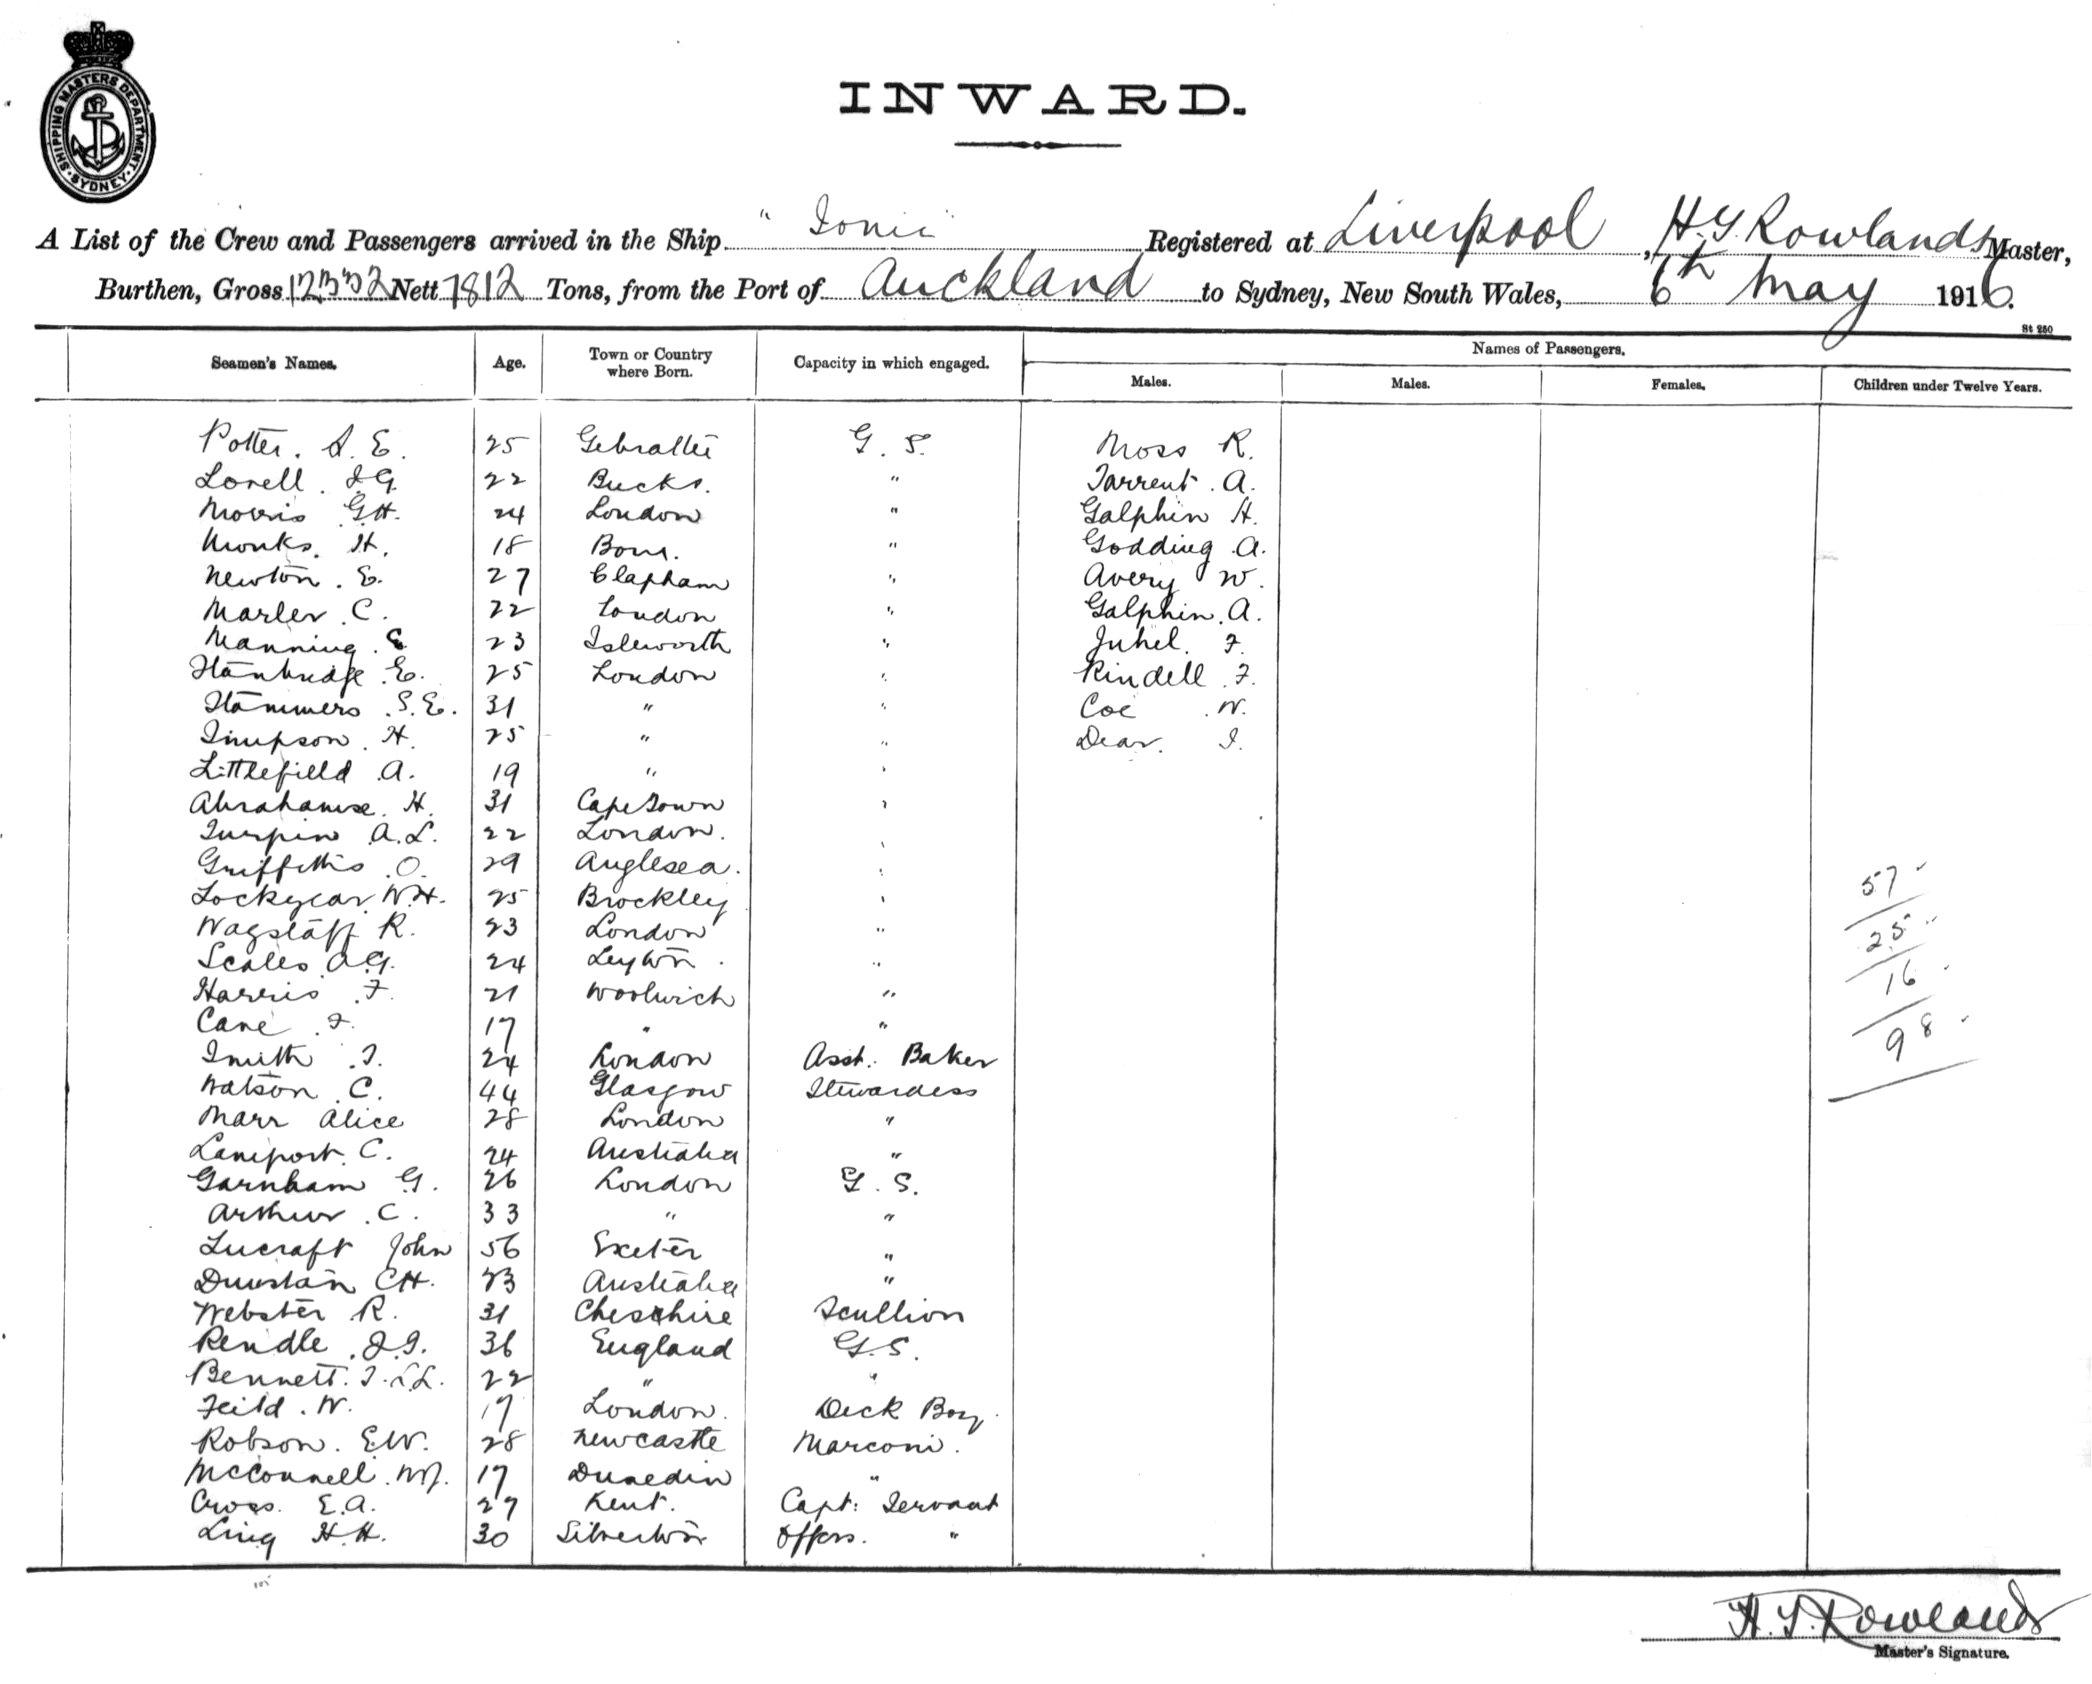 SHIPPING MASTERS DEPARTMENT · SYDNEY ·
INWARD.
A List of the Crew and Passengers arrived in the Ship "Ionic" Registered at Liverpool, H. Rowlands Master,
Burthen, Gross 12332 Nett 7812 Tons, from the Port of Auckland to Sydney, New South Wales, 6th May 1916.
St 250
Seamen's Names. Age. Town or Country where Born. Capacity in which engaged. Names of Passengers.
Males. Males. Females. Children under Twelve Years.
Potter. S. E. 25 Gebralter G. S. Moss R.
Lovell. J G. 22 Bucks. " Tarrent. A.
Morris G H. 24 London " Galphin H.
Monks. H. 18 " Godding A.
Newton. E. 27 Clapham " Avery W.
Marler. C. 22 London " Galphin. A.
Manning. E 23 Isleworth " Juhel. F.
Stanbridge. E. 25 London " Rindell. F.
Stammers. S. E. 31 " " Coe W.
Simpson. H. 25 " " Dear. J.
Littlefield A. 19 " "
Abrahamse. H. 31 Cape Town "
Turpin A. L. 22 London. "
Griffiths. O. 29 Anglesea. "
Lockyear. W. H. 25 Brockley "
Wagstaff R. 23 London "
Scales. A G. 24 Leyton. "
Harris. F. 21 Woolwich "
Cane. F. 17 " "
Smith. J. 24 London Asst. Baker
Watson. C. 44 Glasgow Stewardess
Marr Alice 28 London "
Lamport. C. 24 Australia "
Garnham G. 26 London G. S.
Arthur. C. 33 " "
Lucraft John 56 Exeter "
Dunstan C H. 23 Australia "
Webster R. 31 Cheshire Scullion
Rendle. J. G. 36 England G. S.
Bennett. 22 " "
Feild. W. 17 London. Deck Boy.
Robson. E. W. 28 Newcastle Marconi.
McConnell. W J. 17 Dunedin "
Cross. E. A. 27 Kent. Capt: Servant
Ling H. H. 30 Silvertown Offrs. "
57
25
16
98
H. Rowlands
Master's Signature.